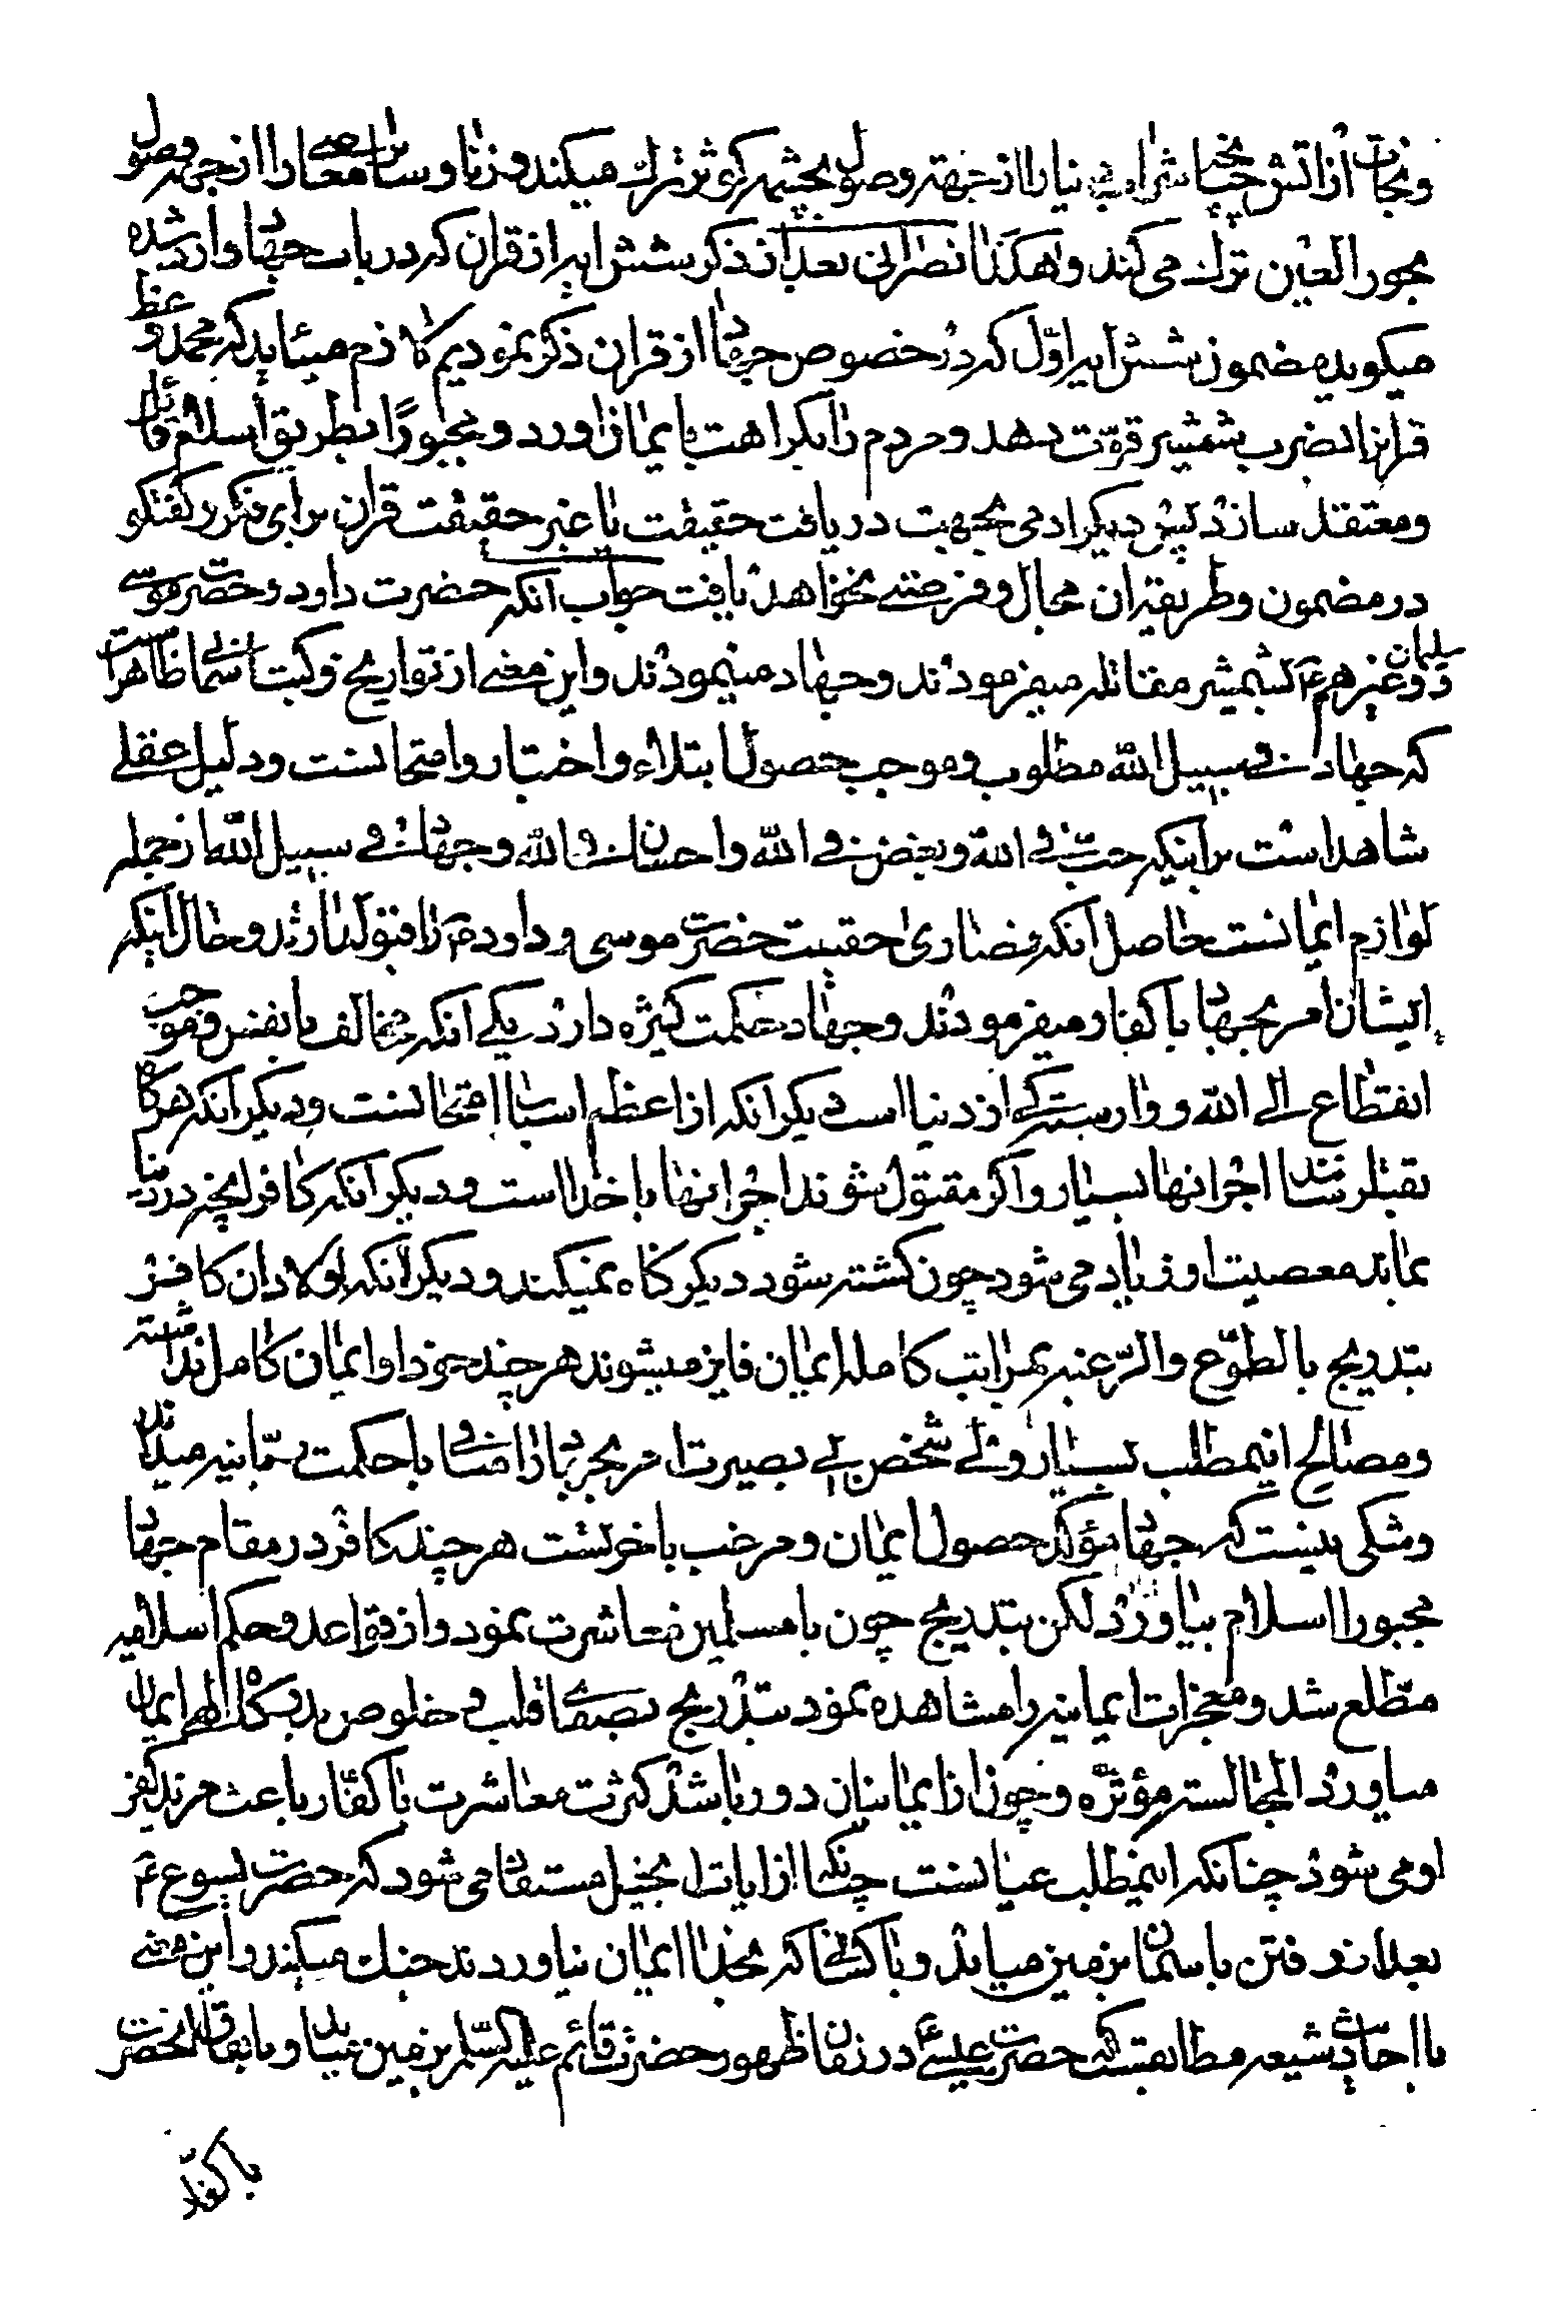 و نجات از آتش جهنم شراب دنیا را از جهة وصول بچشمه کوثر ترک میکند و زنا و سایر معاصی را از جهة وصول
بحور العین ترک می کند و هکذا نصرانی بعد از ذکر شش ایه از قران که در باب جهاد وارد شده
میکوید مضمون شش ایه اوّل که در خصوص جهاد از قران ذکر نمودیم لازم میناید که محمد و عظ
قرانرا بضرب شمشیر قوّت دهد و مردم را بکراهت بایمان اورد و مجبوراً بطریق اسلام قایل
و معتقد سازد پس دیکر ادمی بجهت دریافت حقیقت یا غیر حقیقت قران برای فکر و کفتکو
در مضمون و طریقه ان مجال و فرصتی نخواهد یافت جواب انکه حضرت داود و حضرت موسی
و سلیمان و غیرهم ع بشمشیر مقاتله میفرمودند و جهاد مینمودند و این معنی از تواریخ و کتب اسمانی ظاهر است
که جهاد فی سبیل الله مطلوب و موجب حصول ابتلاء و اختبار و امتحانست و دلیل عقلی
شاهد است بر اینکه حبّ فی الله و بغض فی الله و احسان فی الله و جهاد فی سبیل الله از جمله
لوازم ایمانست حاصل انکه نصاری حقیت حضرت موسی و داود ع را قبول دارند و حال اینکه
ایشان امر بجهاد با کفار میفرمودند و جهاد حکمت کثیره دارد یکی انکه مخالف با نفس و موجب
انقطاع الی الله و وارستکی از دنیا است دیکر انکه از اعظم اسباب امتحانست و دیکر انکه هر کاه
بقتل رسانند اجر انها بسیار و اکر مقتول شوند اجر انها با خدا است و دیکر انکه کافر انچه در دنیا
بماند معصیت او زیاد می شود چون کشته شود دیکر کناه نمیکند و دیکر انکه اولاد ان کافر
بتدریج بالطوّع و الرّغبه بمراتب کامله ایمان فایز میشوند هر چند خود او ایمان کامل نداشته
و مصالح اینمطلب بسیار ولی شخص بی بصیرت امر بجهاد را منافی با حکمت ربّانیه میداند
و شکی نیست که جهاد مؤکد حصول ایمان و مرغب باخرتست هر چند کافر در مقام جهاد
مجبورا اسلام بیاورد لکن بتدریج چون با مسلمین معاشرت نمود و از قواعد و حکم اسلامیه
مطّلع شد و معجزات ایمانیه را مشاهده نمود بتدریج بصفای قلب و خلوص بدرکاه اله ایمان
میاورد المجالسة مؤثرة و چون از ایمانیان دور باشد کثرت معاشرت با کفّار باعث مزید کفر
او می شود چنانکه اینمطلب عیانست چنانکه از ایات انجیل مستفاد می شود که حضرت یسوع ع
بعد از رفتن باسمان بزمین میاید و با کسانی که بخدا ایمان نیاوردند جنک میکند و این معنی
با احادیث شیعه مطابقست که حضرت عیسی ع در زمان ظهور حضرت قائم علیه السّلم بزمین میاید و باتفاق انحضرت
با کفّار